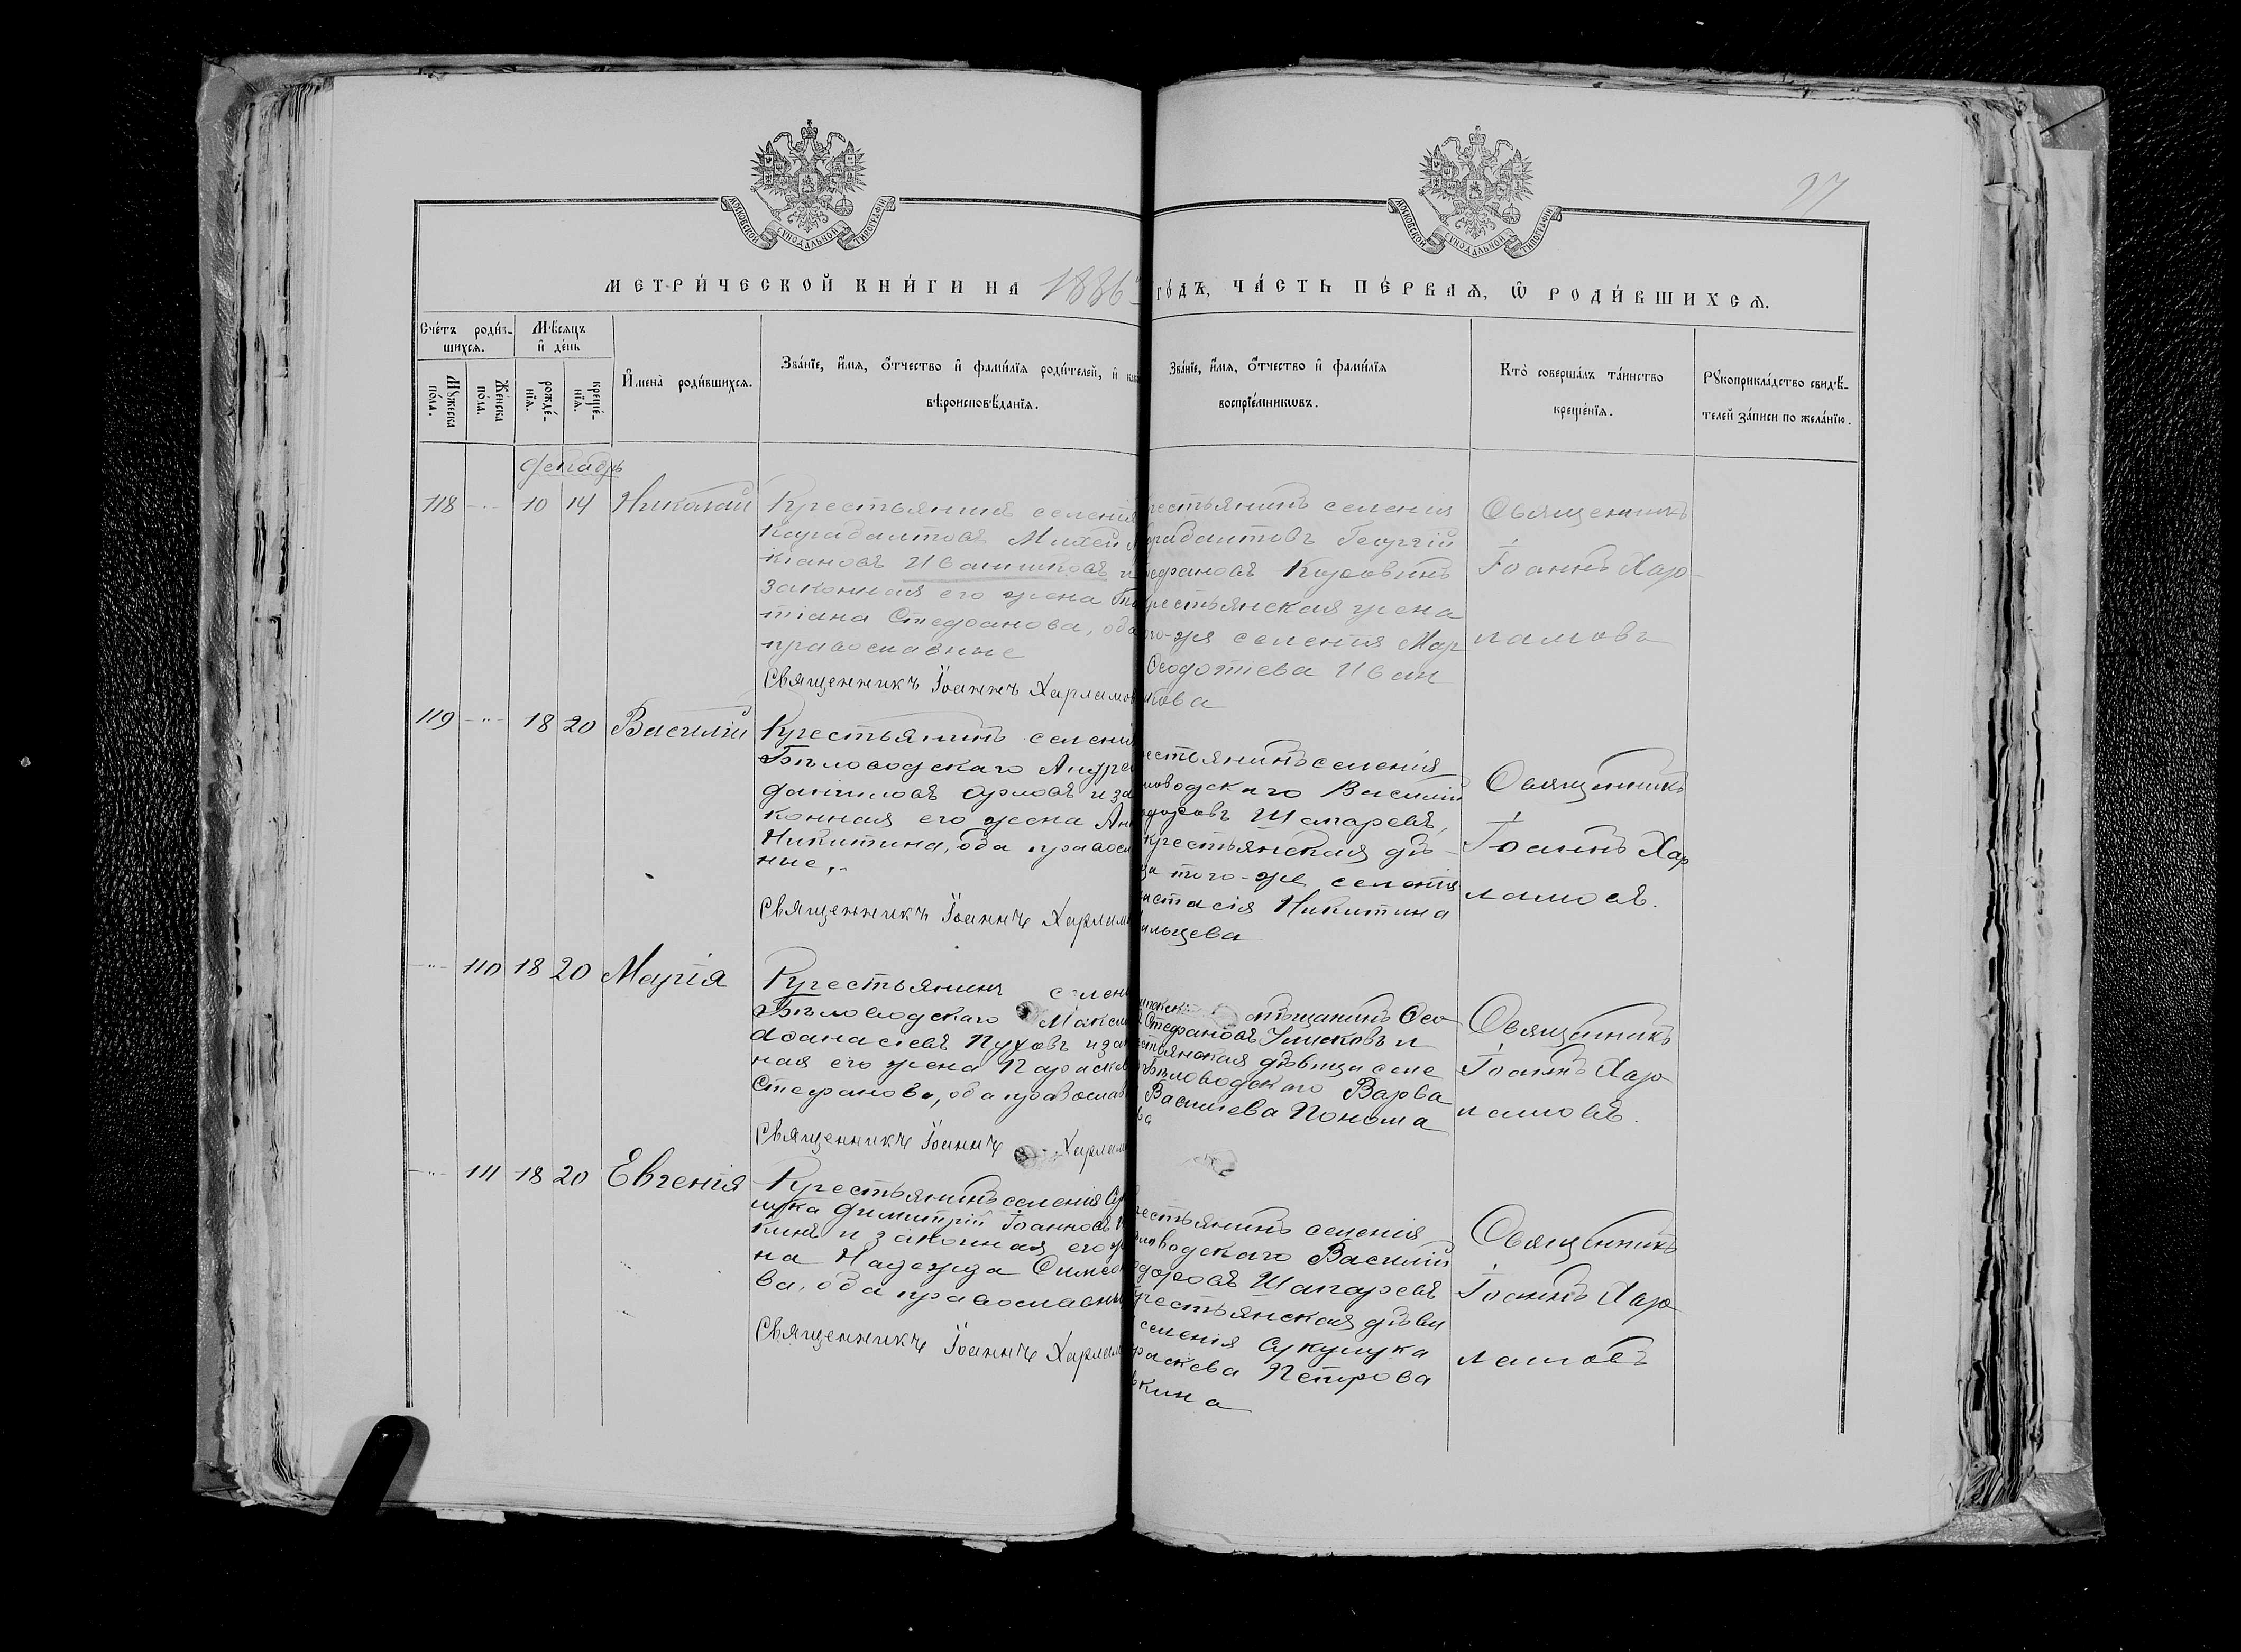 97
МОСКОВСКОЙ СУНОДАЛЬНОЙ ТИПОГРАФІИ
МОСКОВСКОЙ СУНОДАЛЬНОЙ ТИПОГРАФІИ
МЕТРИ́ЧЕСКОЙ КНИ́ГИ НА 1886 го́дъ, ЧА́СТЬ ПЕ́РВАѦ, Ѡ РОДИ́ВШИХСѦ.
Сче́тъ роди́в-
шихсѧ.
Мꙋжеска
по́ла.
Же́нска
по́ла.
Мѣ́сѧцъ
и҆ де́нь
рожде́-
нїѧ.
креще́-
нїѧ.
И҆мена̀ роди́вшихсѧ.
Зва́нїе, и҆́мѧ, ѻ҆́тчество и҆ фами́лїѧ роди́телей, и҆
вѣроисповѣ́данїѧ.
Зва́нїе, и҆́мѧ, ѻ҆́тчество и҆ фами́лїѧ
воспрїе́мникѡвъ.
Кто̀ соверша́лъ та́инство
креще́нїѧ.
Рꙋкоприкла́дство свидѣ́-
телей за́писи по жела́нїю.
Декабрь
118 -"- 10 14 Николай
Крестьянинъ селенія
Карабалтовъ Михей
кіановъ Иванников и
законная его жена
тіана Стефанова, оба
православные
Священникъ Іоаннъ Харламов
рестьянинъ селенія
рабалтовъ Георгій
тефановъ
крестьянская жена
ого-же селенія Мар
Ѳеодотіева Иван
икова
Священникъ
Іоаннъ Хар-
ламовъ
119 -"- 18 20 Василій
Крестьянинъ селенія
Бѣловодскаго Андрей
Даниловъ Орловъ и за
конная его жена Анн
Никитина, оба правосл
ные,
Священникъ Іоаннъ Харлам
естьянинъ селенія
ловодскаго Василій
одоровъ Шапаревъ,
крестьянская дѣ-
ца того-же селенія
астасія Никитина
ильцева
Священникъ
Іоаннъ Хар
ламовъ.
-"- 110 18 20 Марія
Крестьянинъ селен
Бѣловодскаго Макси
Аѳанасіевъ Пуховъ и зак
ная его жена Параске
Стефанова, оба православ
Священникъ Іоаннъ Харлам
Стефановъ и
стьянская дѣвица селе
Бѣловодскаго Варва
Василіева Понома
ва
Священникъ
Іоаннъ Хар
ламовъ.
-"- 111 18 20 Евгенія
Крестьянинъ селенія Су
лука Димитрій Іоанновъ
кинъ и законная его же
на Надежда Симеон
ва, оба православны
Священникъ Іоаннъ Харлам
рестьянинъ селенія
ѣловодскаго Василій
одоровъ Шапаревъ
крестьянская дѣви
селенія Сукулука
раскева Петрова
вкина
Священникъ
Іоаннъ Хар
ламовъ